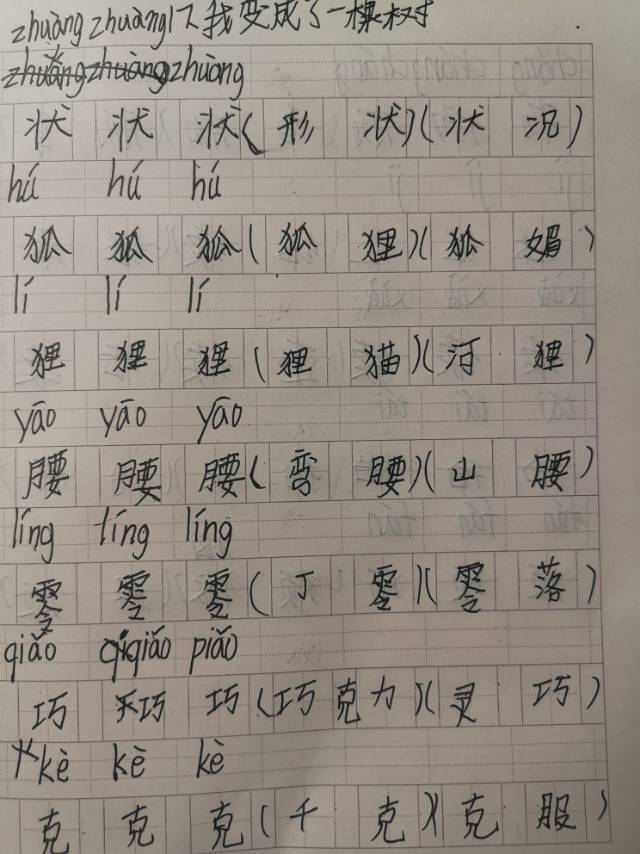 zhuàng zhuàng 17 我变成了一棵树
zhuàng zhuàng zhuàng
状 状 状(形 状)(状 况)
hú hú hú
狐 狐 狐(狐 狸)(狐 媚)
lí lí lí
狸 狸 狸(狸 猫)(河 狸)
yāo yāo yāo
腰 腰 腰(弯 腰)(山 腰)
líng líng líng
零 零 零(丁 零)(零 落)
qiǎo qiqiǎo piǎo
巧 巧 巧(巧克力)(灵 巧)
kè kè kè
克 克 克(千 克)(克 服)